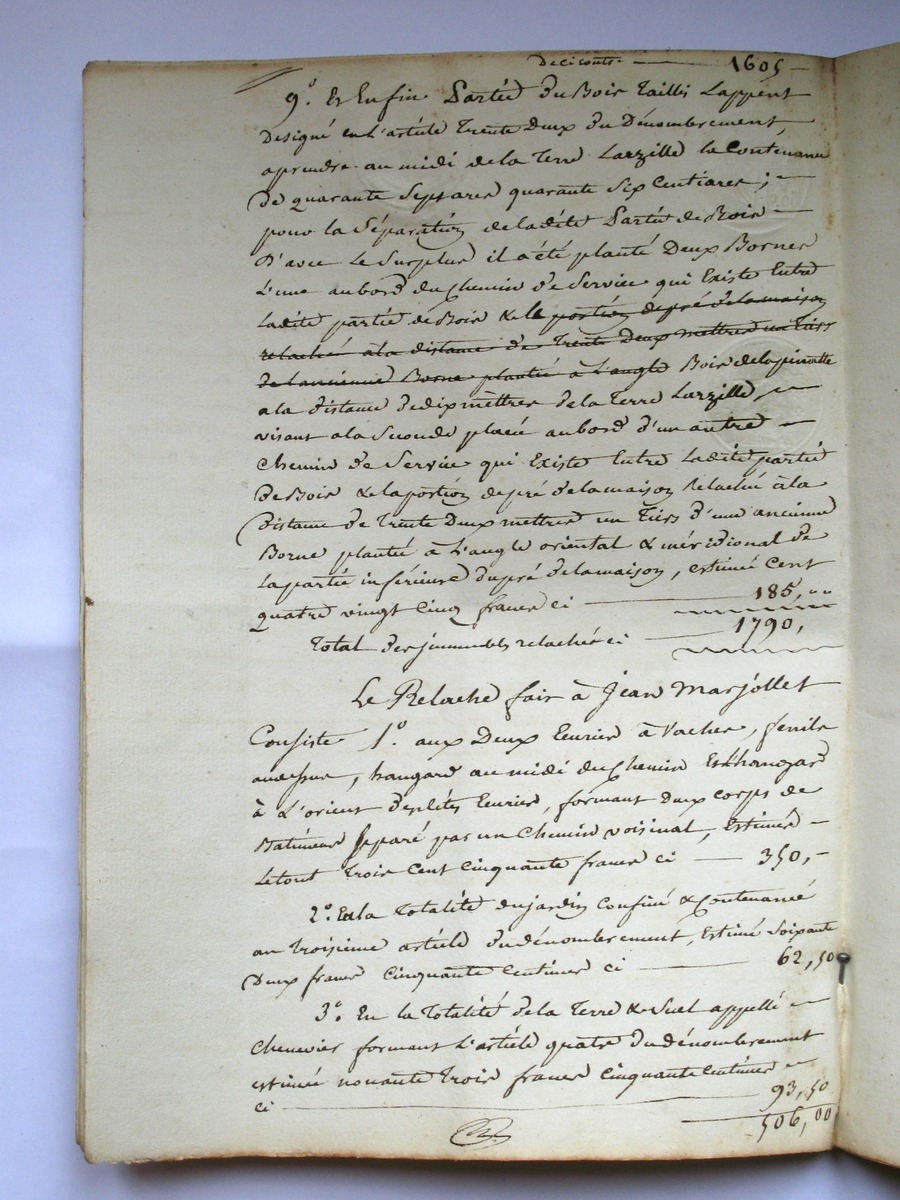 Deci contre - 1605 -
9.° Et Enfin Partie du Bois Taillis Lappent
Designé en L'article Trente Deux du Dénombrement,
aprendre au midi de la Terre Larzille la Contenance
De quarante Sept ares quarante Six Centiares; -
pour la Séparation de ladite Partie de Bois -
D'avec Le Surplus il a été planté Deux Bornes
L'une au bord du Chemin De Service qui Existe Entre
Ladite partie de Bois & le portion de pré de la maison
relaché à la distance de Trente Deux mettres un Tiers
de L'ancienne Borne plantée à L'angle Bois de la
a la distance de dix mêttres de la Terre Larzille, -
visant a la Seconde placée au bord d'un autre -
Chemin de Service qui Existe Entre Ladite partie
De Bois & la portion de pré de la maison Relaché à la
Distance de Trente Deux mettres un Tiers d'une ancienne
Borne plantée à L'angle oriental & méridional de
La partie inférieure du pré de la maison, estimée Cent
quatre vingt Cinq francs ci - 185, ,,
Total des immeubles relachés ci - 1790,
Le Relache fair à Jean Marjollet
Consiste 1.° aux Deux Ecuries à Vaches, fenils
audessus, hangard au midi du Chemin Est hangard
à L'orient desdites Ecuries, formant Deux Corps de
Batimens Sepparé par un Chemin voisinal, Estimés -
Le tout Trois Cent Cinquante francs ci - 350, -
2.° En la Totalité du jardin Confiné & Contenancé
au Troisieme article du dénombrement, Estimé Soixante
Deux francs Cinquante Centimes ci - 62,50
3.° En la Totalité de la Terre & Suel appellé -
Chenevier formant L'article quatre du dénombrement
estimée nonante Trois francs Cinquante Centimes -
ci - 93,50
506,00